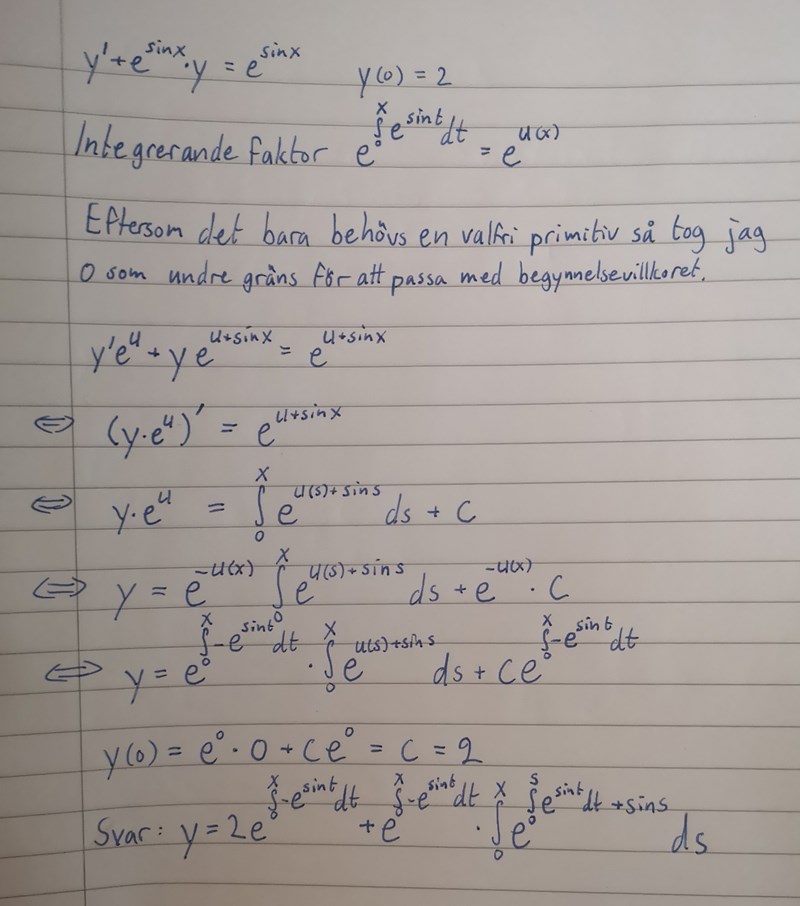 y' + e^{sinx}·y = e^{sinx}   y(0) = 2
Integrerande faktor e^{∫_0^x e^{sint} dt} = e^{u(x)}
Eftersom det bara behövs en valfri primitiv så tog jag
0 som undre gräns för att passa med begynnelsevillkoret.
y'e^u + y e^{u+sinx} = e^{u+sinx}
⇔ (y·e^u)' = e^{u+sinx}
⇔ y·e^u = ∫_0^x e^{u(s)+sins} ds + C
⇔ y = e^{-u(x)} ∫_0^x e^{u(s)+sins} ds + e^{-u(x)} · C
⇔ y = e^{∫_0^x -e^{sint} dt} · ∫_0^x e^{u(s)+sins} ds + C e^{∫_0^x -e^{sint} dt}
y(0) = e^0 · 0 + C e^0 = C = 2
Svar: y = 2e^{∫_0^x -e^{sint} dt} + e^{∫_0^x -e^{sint} dt} · ∫_0^x e^{∫_0^s e^{sint} dt + sins} ds